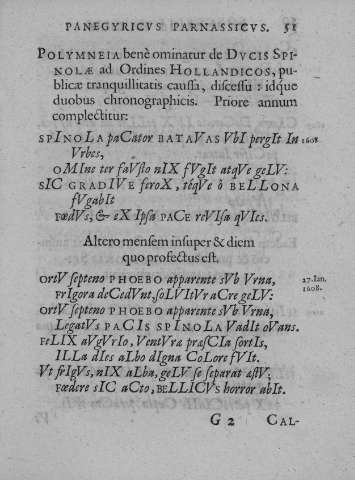 PANEGYRICVS PARNASSICVS. 51
POLYMNEIA benè ominatur de DVCIS SPI-
NOLÆ ad Ordines HOLLANDICOS, pu-
blicæ tranquillitatis caussa, discessu : idque
duobus chronographicis. Priore annum
complectitur:
SPINOLA paCator BATAVAS VbI pergIt In 1608
Vrbes,
OMIne ter faVsto nIX fVgIt atqVe geLV:
SIC GRADIVE feroX, téqVe ò BELLONA
fVgabIt
FœdVs, & eX Ipsa PACE reVIsa qVIes.
Altero mensem insuper & diem
quo profectus est.
OrtV septeno PHOEBO apparente sVb Vrna, 27. Ian.
FrIgora deCedVnt, soLVItVr aCre geLV: 1608.
OrtV septeno PHOEBO apparente sVb Vrna,
LegatVs PACIS SPINOLA VadIt oVans.
FeLIX aVgVrIo, VentVræ præsCIa sortIs,
ILLa dIes aLbo dIgna CoLore fVIt.
Vt frIgVs, nIX aLba, geLV se separat æstV;
Fœdere sIC aCto, BELLICVs horror abIt.
G 2 CAL-